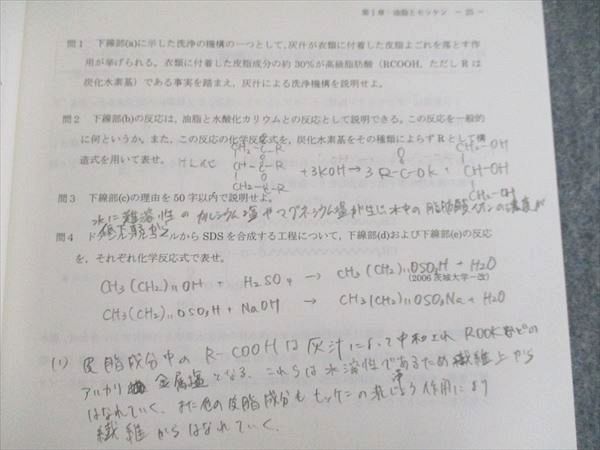 第1章 油脂とセッケン － 25 －
問1 下線部(a)に示した洗浄の機構の一つとして，灰汁が衣類に付着した皮脂よごれを落とす作
用が挙げられる。衣類に付着した皮脂成分の約30%が高級脂肪酸（RCOOH，ただしRは
炭化水素基）である事実を踏まえ，灰汁による洗浄機構を説明せよ。
問2 下線部(b)の反応は，油脂と水酸化カリウムとの反応として説明できる。この反応を一般的
に何というか。また，この反応の化学反応式を，炭化水素基をその種類によらずRとして構
造式を用いて表せ。 けん化
CH2-O-C-R
CH-O-C-R
CH2-O-C-R
+3KOH → 3 R-C-OK +
CH2-OH
CH-OH
CH2-OH
問3 下線部(c)の理由を50字以内で説明せよ。
水に難溶性のカルシウム塩やマグネシウム塩が生じ水中の脂肪酸イオンの濃度が
低下するから
問4 ドデシルアルコールからSDSを合成する工程について，下線部(d)および下線部(e)の反応
を，それぞれ化学反応式で表せ。
CH3(CH2)11OH + H2SO4 → CH3(CH2)11OSO3H + H2O
(2006 茨城大学－改)
CH3(CH2)11OSO3H + NaOH → CH3(CH2)11OSO3Na + H2O
(1) 皮脂成分中の R-COOHは灰汁によって中和され ROOKなどの
アルカリ金属塩となる。これらは水溶性であるため繊維上から
はなれていく。また他の皮脂成分もセッケンの乳化作用により
繊維からはなれていく。